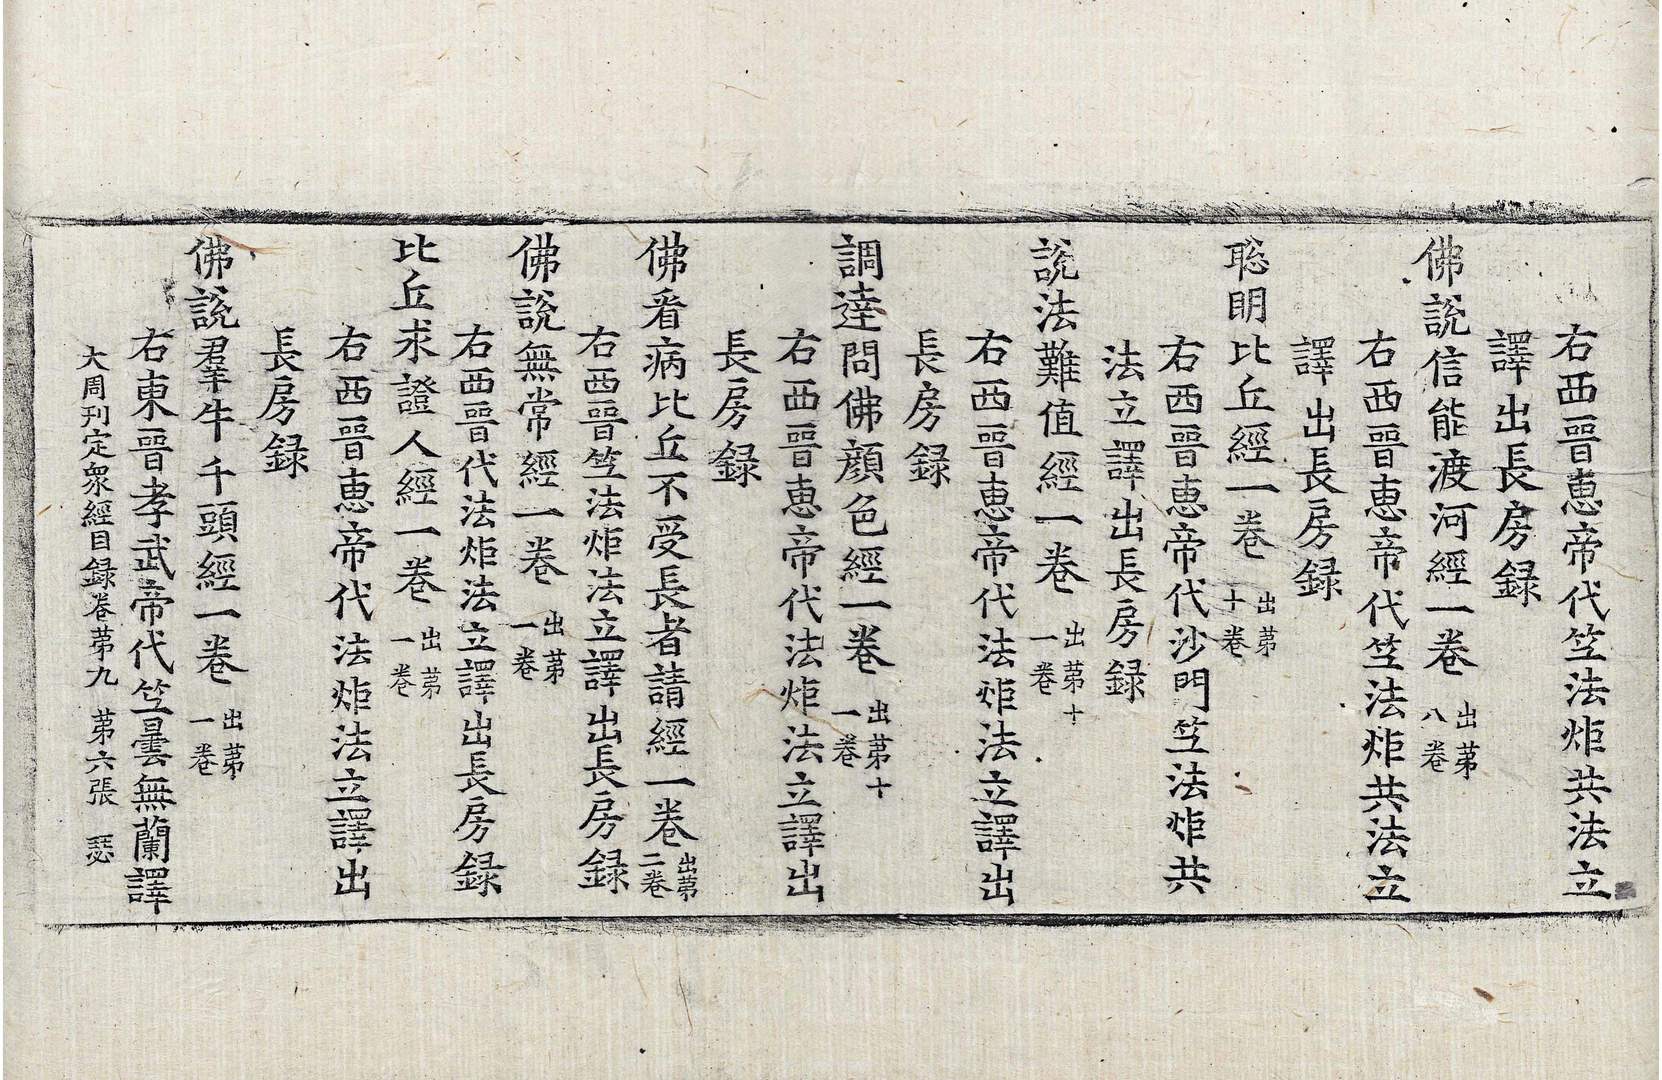 右西晉恵帝代笁法炬共法立
譯出長房録
佛説信能渡河經一卷出苐八卷
右西晉恵帝代笁法炬共法立
譯出長房録
聡明比丘經一卷出苐十卷
右西晉恵帝代沙門笁法炬共
法立譯出長房録
説法難值經一卷出苐十一卷
右西晉恵帝代法炬法立譯出
長房録
調逹問佛顔色經一卷出苐十一卷
右西晉恵帝代法炬法立譯出
長房録
佛看病比丘不受長者請經一卷出苐二卷
右西晉笁法炬法立譯出長房録
佛説無常經一卷出苐一卷
右西晉代法炬法立譯出長房録
比丘求證人經一卷出苐一卷
右西晉恵帝代法炬法立譯出
長房録
佛説羣牛千頭經一卷出苐一卷
右東晉孝武帝代笁曇無蘭譯
大周刋定衆經目録卷苐九 苐六張 瑟